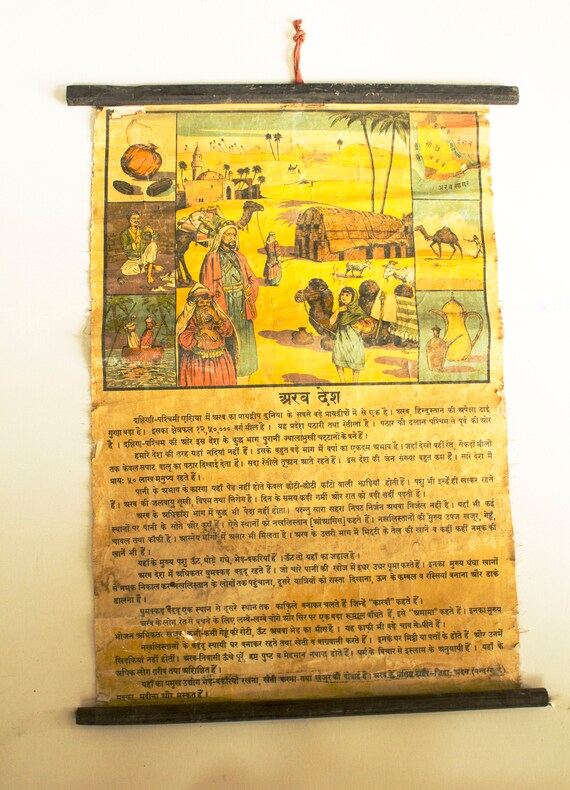 अरब सागर
अरब देश
दक्षिणी-पश्चिमी एशिया में अरब का प्रायद्वीप दुनिया के सबसे बड़े प्रायद्वीपों में से एक है। अरब, हिन्दुस्तान की अपेक्षा ढाई
गुणा बड़ा है। इसका क्षेत्रफल १२,५०,००० वर्ग मील है। यह प्रदेश पठारी तथा रेतीला है। पठार की ढलान पश्चिम से पूर्व की ओर
है। दक्षिण-पश्चिम की ओर इस देश के कुछ भाग पुरानी ज्वालामुखी चट्टानों के बने हैं।
हमारे देश की तरह यहां नदियां नहीं हैं। इसके बहुत बड़े भाग में वर्षा का एकदम अभाव है। जहां देखो वहीं रेत, सैकड़ों मीलों
तक केवल सपाट बालू का पठार दिखाई देता है। सदा रेतीले तूफान आते रहते हैं। इस देश की जन संख्या बहुत कम है। सारे देश में
प्रायः ५० लाख मनुष्य रहते हैं।
पानी के अभाव के कारण यहाँ पेड़ नहीं होते केवल छोटी-छोटी कांटों वाली झाड़ियां होती हैं। पशु भी इन्हें ही खाकर रहते
हैं। अरब की जलवायु सूखी, विषम तथा निरोग है। दिन के समय कड़ी गर्मी और रात को बड़ी सर्दी पड़ती है।
अरब के अधिकांश भाग में कुछ भी पैदा नहीं होता। परन्तु सारा सहरा निपट निर्जन अथवा निर्जल नहीं है। यहाँ भी कई
स्थानों पर पानी के सोते और कुएँ हैं। ऐसे स्थानों को नखलिस्तान [ओआसिस] कहते हैं। नखलिस्तानों की मुख्य उपज खजूर, गेहूँ,
चावल तथा कॉफी है। आम्नेय में अनार भी मिलता है। अरब के उत्तरी भाग में मिट्टी के तेल की खानें व कहीं कहीं नमक की
खानें भी हैं।
यहाँ के मुख्य पशु ऊँट, घोड़े गधे, भेड़-बकरियाँ हैं। ऊँट तो यहाँ का जहाज है।
अरब देश में अधिकतर घुमक्कड़ बद्दू रहते हैं। जो चारे पानी की खोज में इधर उधर घूमा करते हैं। इनका मुख्य धंधा खानों
से नमक निकाल कर नखलिस्तान के लोगों तक पहुंचाना, दूसरे यात्रियों को रास्ता दिखाना, ऊन के कम्बल व रस्सियां बनाना और डाके
डालना है।
घुमक्कड़ बद्दू एक स्थान से दूसरे स्थान तक काफिले बनाकर चलते हैं जिन्हें "कारवाँ" कहते हैं।
अरब के लोग रेत से बचने के लिए लम्बे-लम्बे चोगे और सिर पर एक बड़ा रूमाल बाँधते हैं, इसे "अमामा" कहते हैं। इनका मुख्य
भोजन अधिकतर खजूर, कभी-कभी गेहूं की रोटी, ऊँट अथवा भेड़ का मांस है। यह काफी भी बड़े चाव से पीते हैं।
नखलिस्तानों के बद्दू स्थायी घर बनाकर रहते तथा खेती व बागवानी करते हैं। इनके घर मिट्टी या घास के होते हैं और उनमें
खिड़कियां नहीं होतीं। अरब-निवासी ऊँचे पूरे, हृष्ट पुष्ट व मेहमान नवाज़ होते हैं। धर्म के विचार से इस्लाम के अनुयायी हैं। यहाँ के
अधिक लोग गरीब तथा अशिक्षित हैं।
यहाँ का प्रमुख उद्योग भेड़-बकरियां रखना, खेती करना तथा खजूर की
मक्का, मदीना और मस्कत हैं।